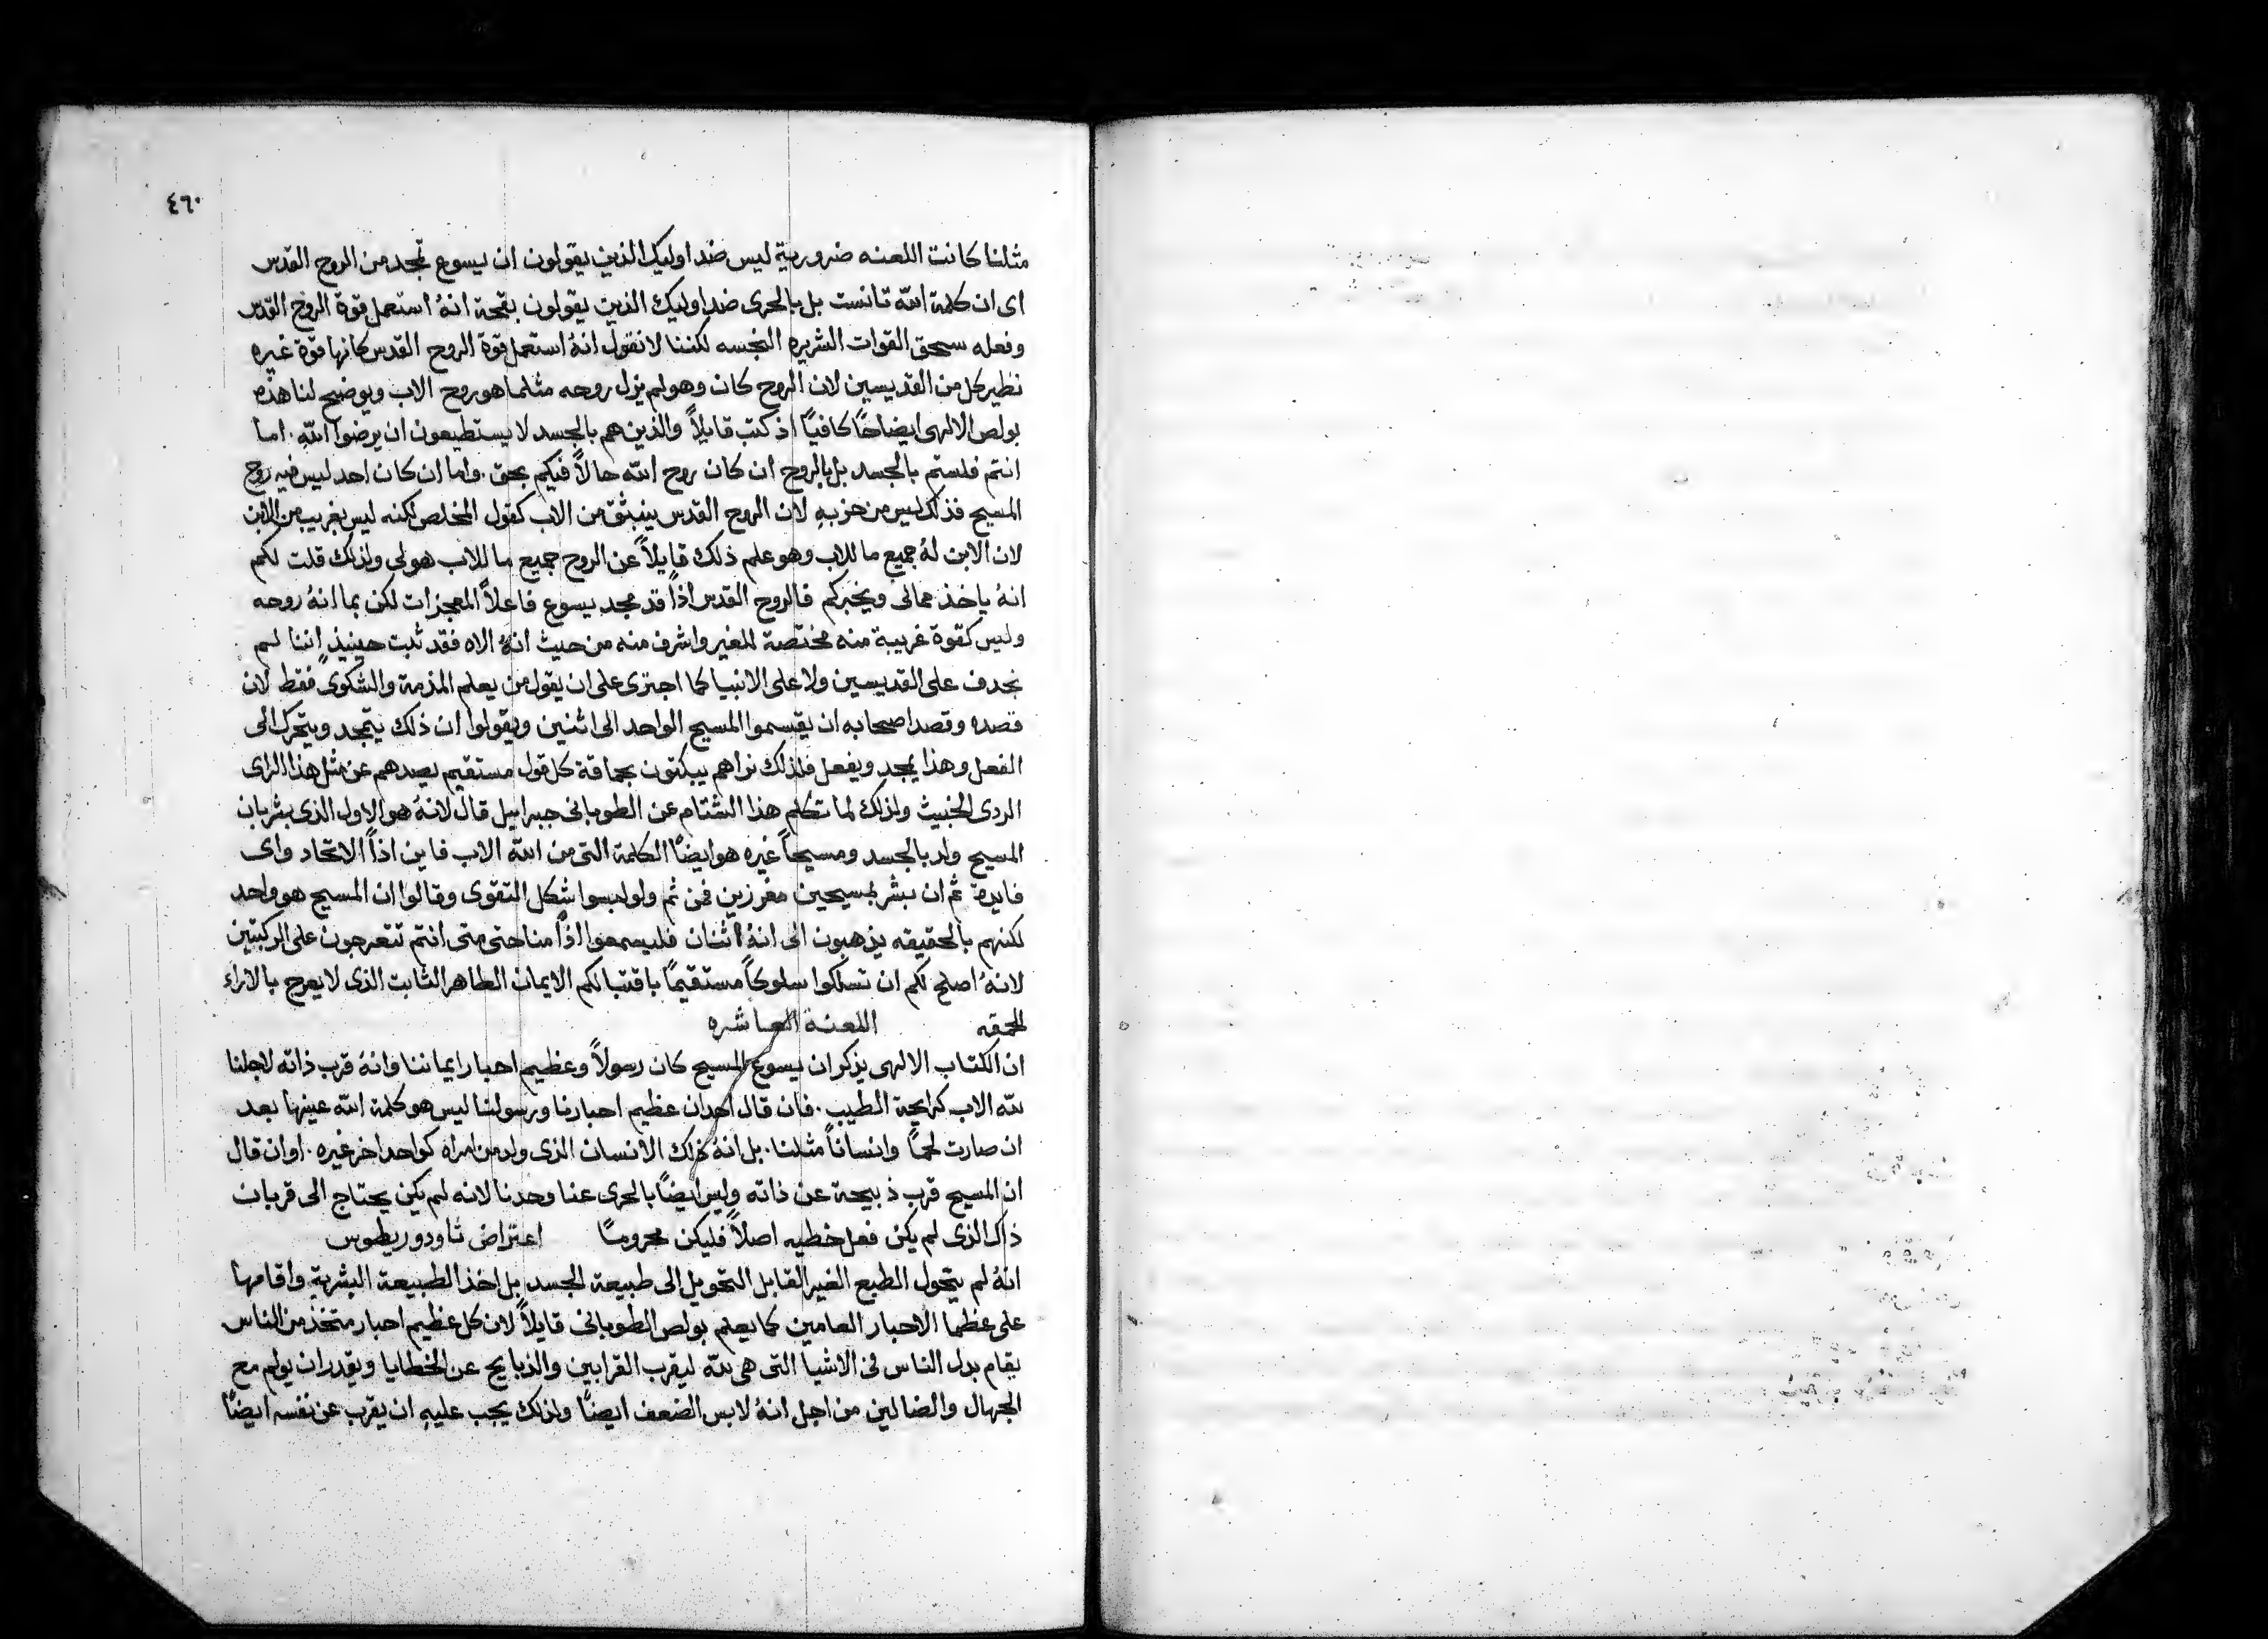 ٤٦٠
مثلنا كانت اللعنه ضرورية ليس ضد اوليك الذين يقولون ان يسوع تمجد من الروح القدس
اى ان كلمة الله تانست بل بالحرى ضد اوليك الذين يقولون بقحة انهُ استعمل قوة الروح القدس
وفعله سحق القوات الشريره النجسه لكننا لا نقول انهُ استعمل قوة الروح القدس كانها قوة غيره
نظير كل من القديسين لان الروح كان وهو لم يزل روحه مثلما هو روح الاب ويوضح لنا هذه
بولص الالهى ايضاحًا كافيًا اذ كتب قايلاً والذين هم بالجسد لا يستطيعون ان يرضوا الله. اما
انتم فلستم بالجسد بل بالروح ان كان روح الله حالاً فيكم بحق. واما ان كان احد ليس فيه روح
المسيح فذلك ليس من حزبهِ لان الروح القدس ينبثق من الاب كقول المخلص لكنه ليس بغريب من الابن
لان الابن لهُ جميع ما للاب وهو علم ذلك قايلاً عن الروح جميع ما للاب هو لى ولذلك قلت لكم
انهُ ياخذ ممالى ويخبركم فالروح القدس اذاً قد مجد يسوع فاعلاً المعجزات لكن بما انهُ روحه
وليس كقوة غريبة منه مختصة للغير واشرف منه من حيث انهُ الاه فقد ثبت حينيذٍ اننا لم
نجدف على القديسين ولا على الانبيا كما اجترى على ان يقول من يعلم المذمة والشكوى فقط لان
قصده وقصد اصحابه ان يقسموا المسيح الواحد الى اثنين ويقولوا ان ذلك يتمجد ويتحرك الى
الفعل وهذا يمجد ويفعل فلذلك نراهم يبكتون بحماقة كل قول مستقيم يصدهم عن مثل هذا الراى
الردى الخبيث ولذلك لما تكلم هذا الشتام عن الطوبانى جبراييل قال لانهُ هو الاول الذى بشر بان
المسيح ولد بالجسد ومسيحاً غيره هو ايضًا الكلمة التى من الله الاب فاين اذاً الاتحاد واى
فايدة ثم ان بشر بمسيحين مفرزين فمن ثم ولو لبسوا شكل التقوى وقالوا ان المسيح هو واحد
لكنهم بالحقيقه يذهبون الى انهُ اثنان فليسمعوا اذاً منا حتى متى انتم تتعرجون على الركبتين
لانهُ اصلح لكم ان تسلكوا سلوكاً مستقيمًا باقتبالكم الايمان الطاهر الثابت الذى لا يعرج بالاراء
المحمقه اللعنة العاشره
ان الكتاب الالهى يذكر ان يسوع المسيح كان رسولاً وعظيم احبار ايماننا وانهُ قرب ذاته لاجلنا
لله الاب كرايحة الطيب. فان قال احد ان عظيم احبارنا ورسولنا ليس هو كلمة الله عينها بعد
ان صارت لحمًا وانسانًا مثلنا. بل انهُ ذلك الانسان الذى ولد من امراه كواحد اخر غيره. او ان قال
ان المسيح قرب ذبيحة عن ذاته وليس ايضًا بالحرى عنا وحدنا لانه لم يكن يحتاج الى قربان
ذاك الذى لم يكن فعل خطيه اصلاً فليكن محرومًا اعتراض ثاودوريطوس
انهُ لم يتحول الطبع الغير القابل التحويل الى طبيعة الجسد بل اخذ الطبيعة البشرية واقامها
على عظما الاحبار العامين كما يعلم بولص الطوبانى قايلاً لان كل عظيم احبار متخذ من الناس
يقام بدل الناس فى الاشيا التى هى لله ليقرب القرابين والذبايح عن الخطايا ويقدر ان يولم مع
الجهال والضالين من اجل انهُ لابس الضعف ايضًا ولذلك يجب عليهِ ان يقرب عن نفسه ايضًا